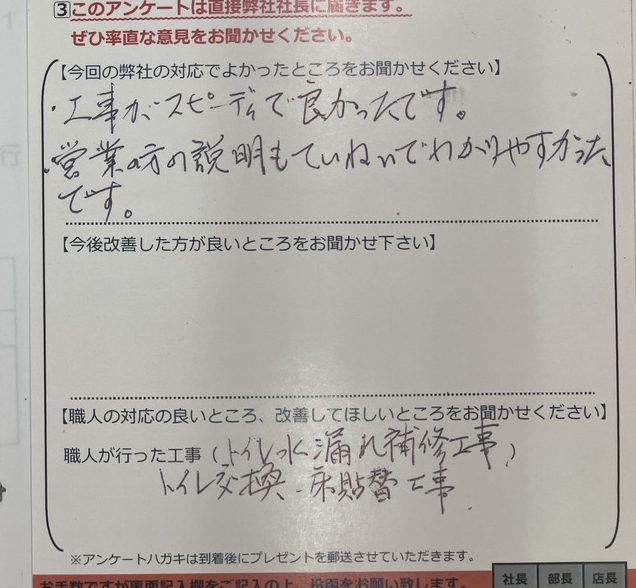 ③このアンケートは直接弊社社長に届きます。
ぜひ率直な意見をお聞かせください。
【今回の弊社の対応でよかったところをお聞かせください】
・工事がスピーディで良かったです。
・営業の方の説明もていねいでわかりやすかった
です。
【今後改善した方が良いところをお聞かせ下さい】
【職人の対応の良いところ、改善してほしいところをお聞かせください】
職人が行った工事(トイレ水漏れ補修工事)
トイレ交換、床貼替工事
※アンケートハガキは到着後にプレゼントを郵送させていただきます。
お手数ですが裏面記入欄をご記入の上、投函をお願い致します。
社長 部長 店長
行